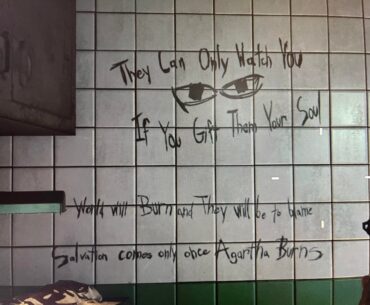 They Can Only Watch You
If You Gift Them Your Soul
World will Burn and They will be to blame
Salvation comes only once Agartha Burns